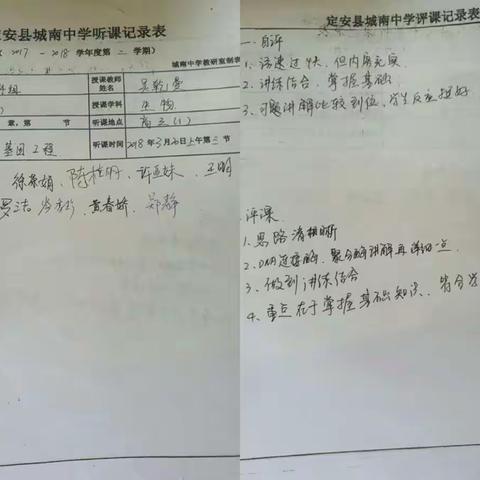 定安县城南中学听课记录表
2017 - 2018 学年度第二学期)
城南中学教研室制表
组
授课教师姓名
授课学科 生物
章,第 节
听课地点 高三(1)
基因工程
听课时间 2018年3月20日上午第三节
陈桂
黄春娇、郑静
定安县城南中学评课记录表
一、自评
1、语速过快,但内容充实
2、讲练结合,掌握基础
3、习题讲解比较到位,学生反应挺好
评课
1、思路清晰
2、DNA连接酶、聚合酶讲解再详细一点
3、做到讲练结合
4、重点在于掌握基础知识、